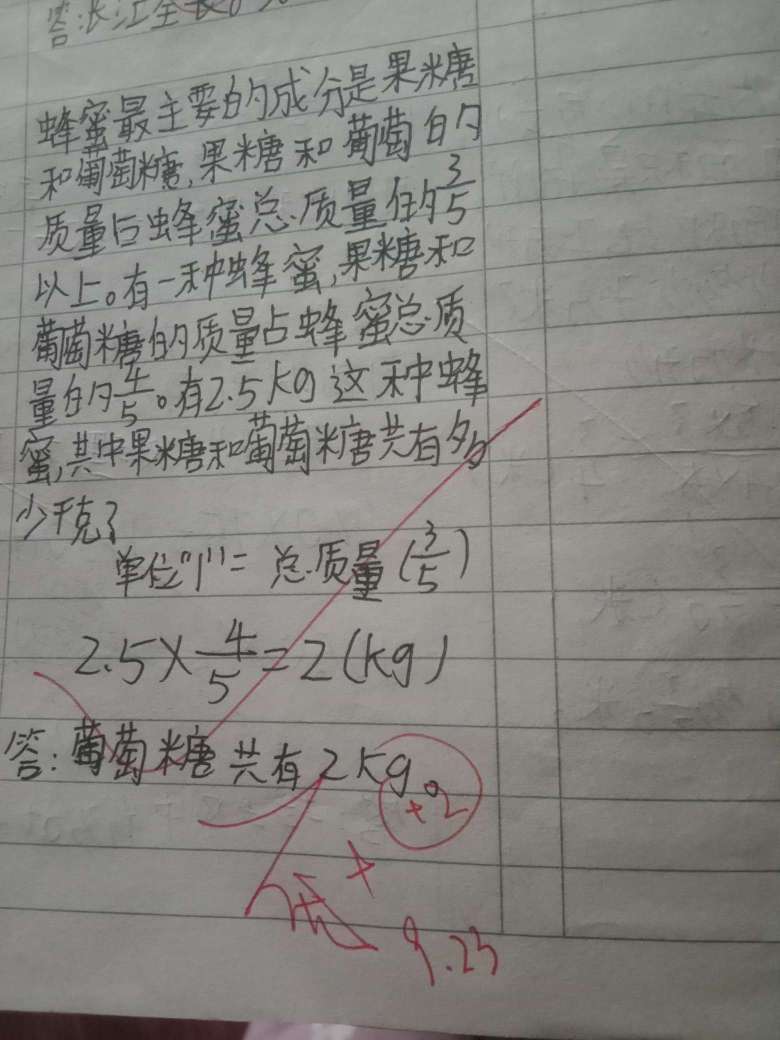 答:长江全长
蜂蜜最主要的成分是果糖
和葡萄糖,果糖和葡萄的
质量占蜂蜜总质量的3/5
以上。有一种蜂蜜,果糖和
葡萄糖的质量占蜂蜜总质
量的4/5。有2.5kg这种蜂
蜜,其中果糖和葡萄糖共有多
少千克?
单位"1"= 总质量(3/5)
2.5×4/5=2(kg)
答:葡萄糖共有2kg。
+2
优+
9.23